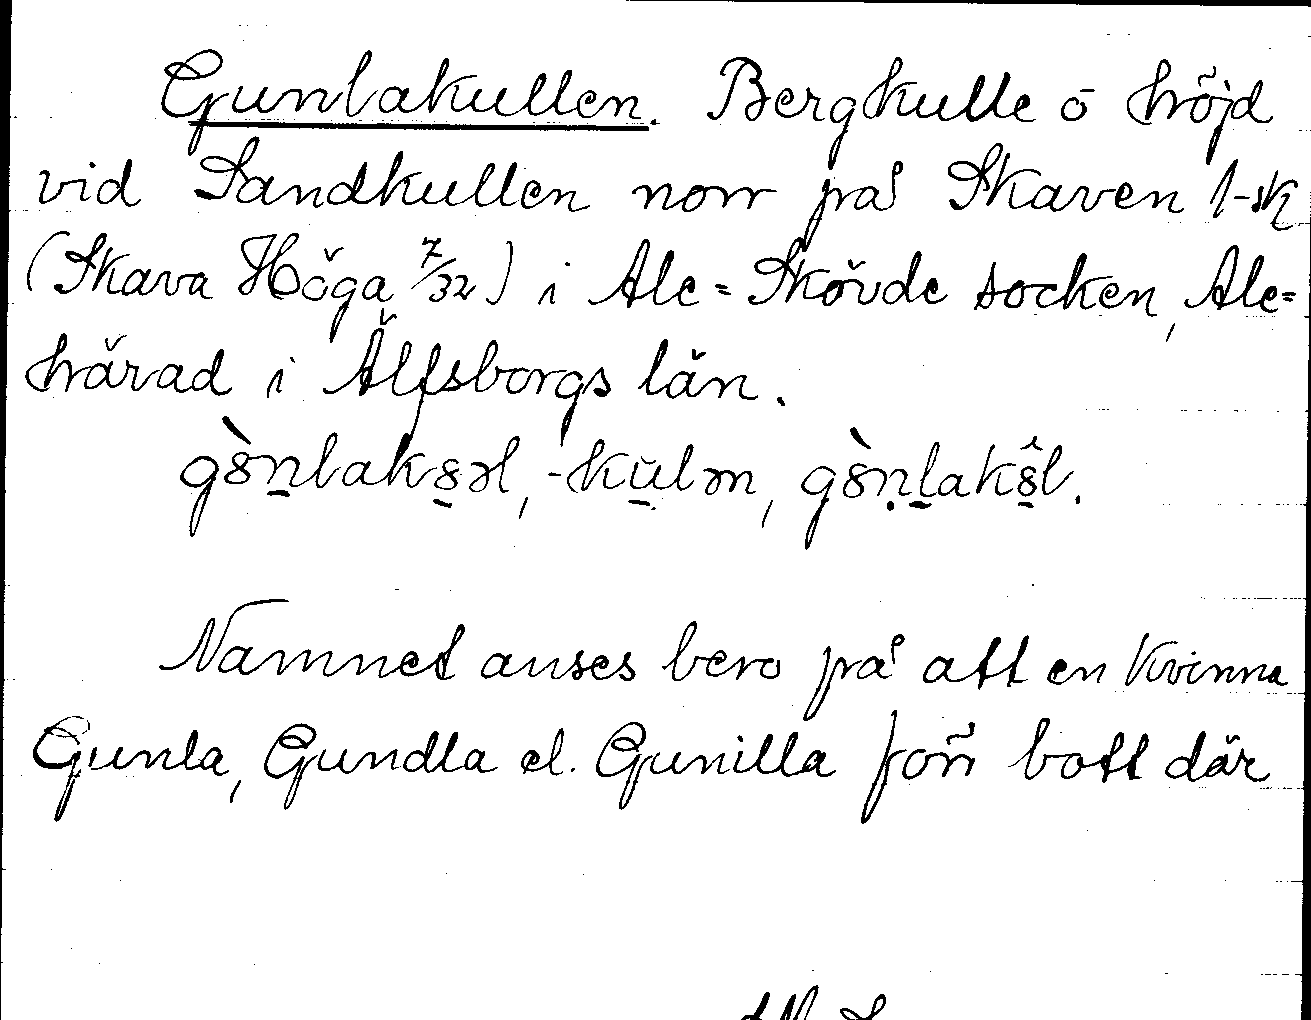 Gunlakullen. Bergkulle o höjd
vid Sandkullen norr på Skaven 1-sk
(Skava Höga 7/32) i Ale-Skövde socken, Ale-
härad i Älfsborgs län.
Namnet anses bero på att en kvinna
Gunla, Gundla el. Gunilla förr bott där